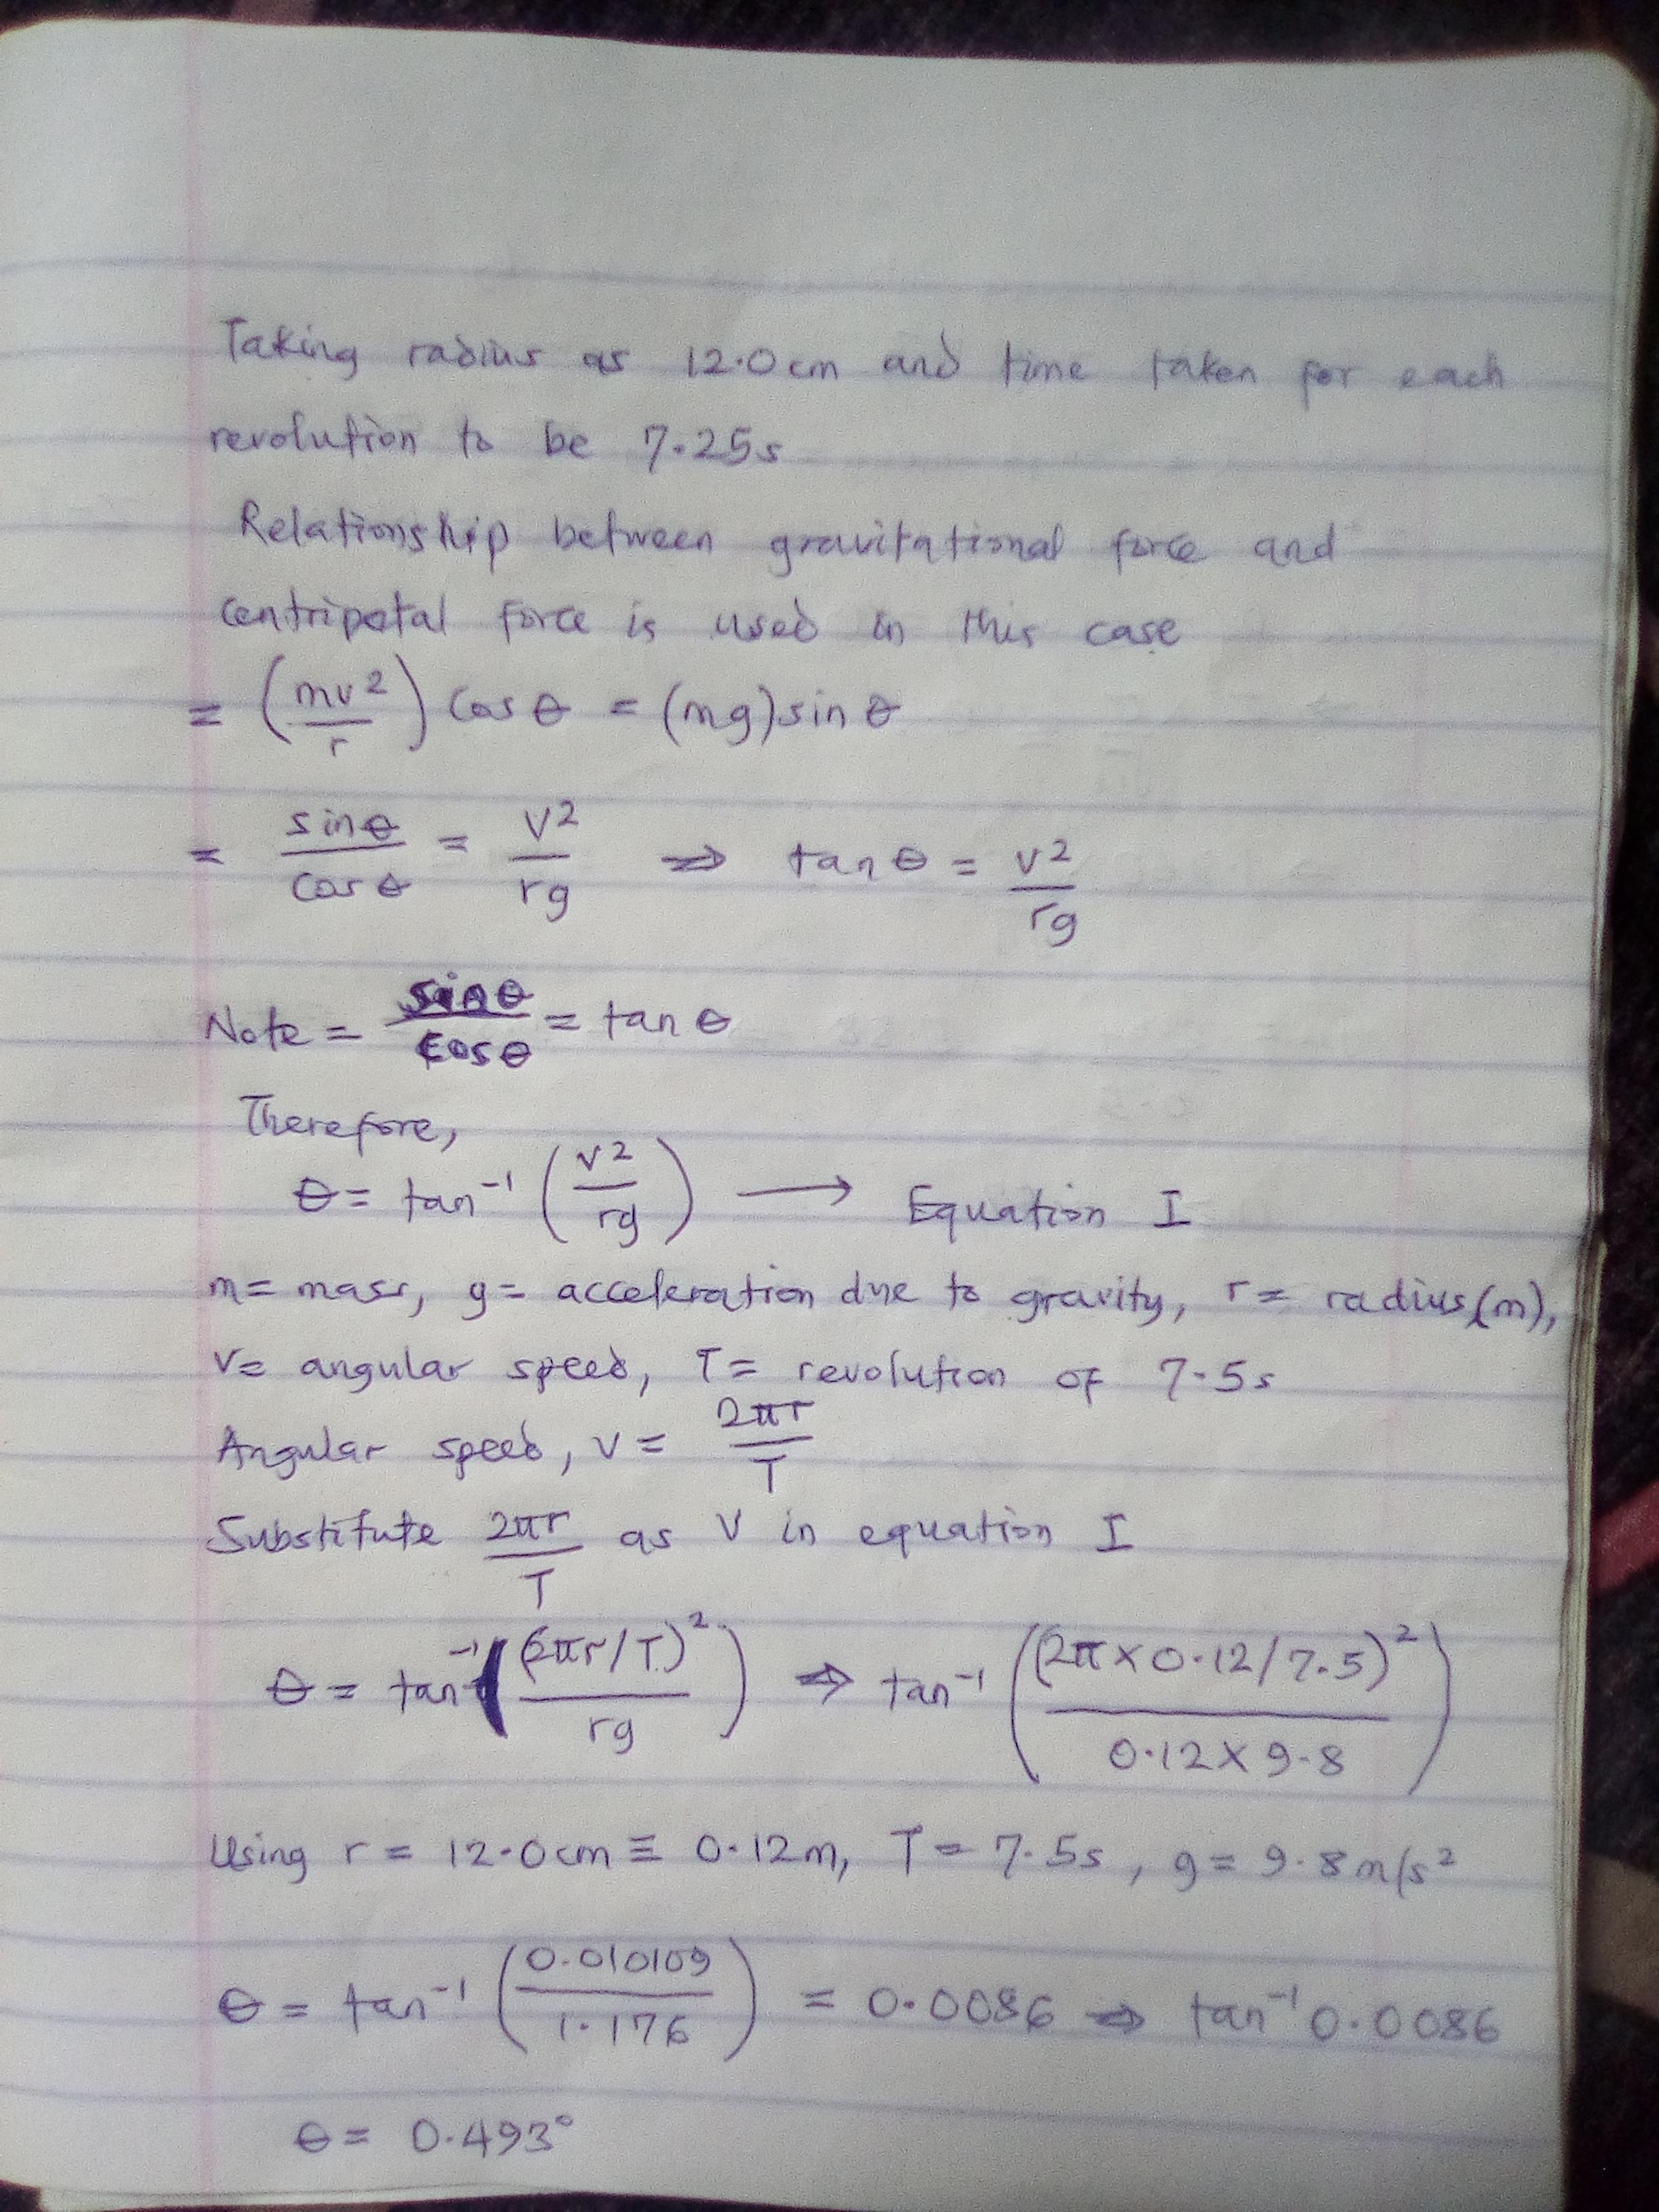 Taking radius as 12.0cm and time taken for each
revolution to be 7.25s
Relationship between gravitational force and
centripetal force is used in this case
= (mv²/r) cos θ = (mg)sin θ
= sinθ/cosθ = v²/rg ⇒ tan θ = v²/rg
Note = sinθ/cosθ = tan θ
Therefore,
θ = tan⁻¹ (v²/rg) → Equation I
m = mass, g = acceleration due to gravity, r = radius(m),
v= angular speed, T = revolution of 7.5s
Angular speed, v = 2πr/T
Substitute 2πr/T as V in equation I
θ = tan⁻¹((2πr/T)²/rg) ⇒ tan⁻¹ ((2π×0.12/7.5)²/0.12×9.8)
Using r = 12.0cm ≡ 0.12m, T = 7.5s, g = 9.8m/s²
θ = tan⁻¹ (0.010109/1.176) = 0.0086 ⇒ tan⁻¹ 0.0086
θ = 0.493°